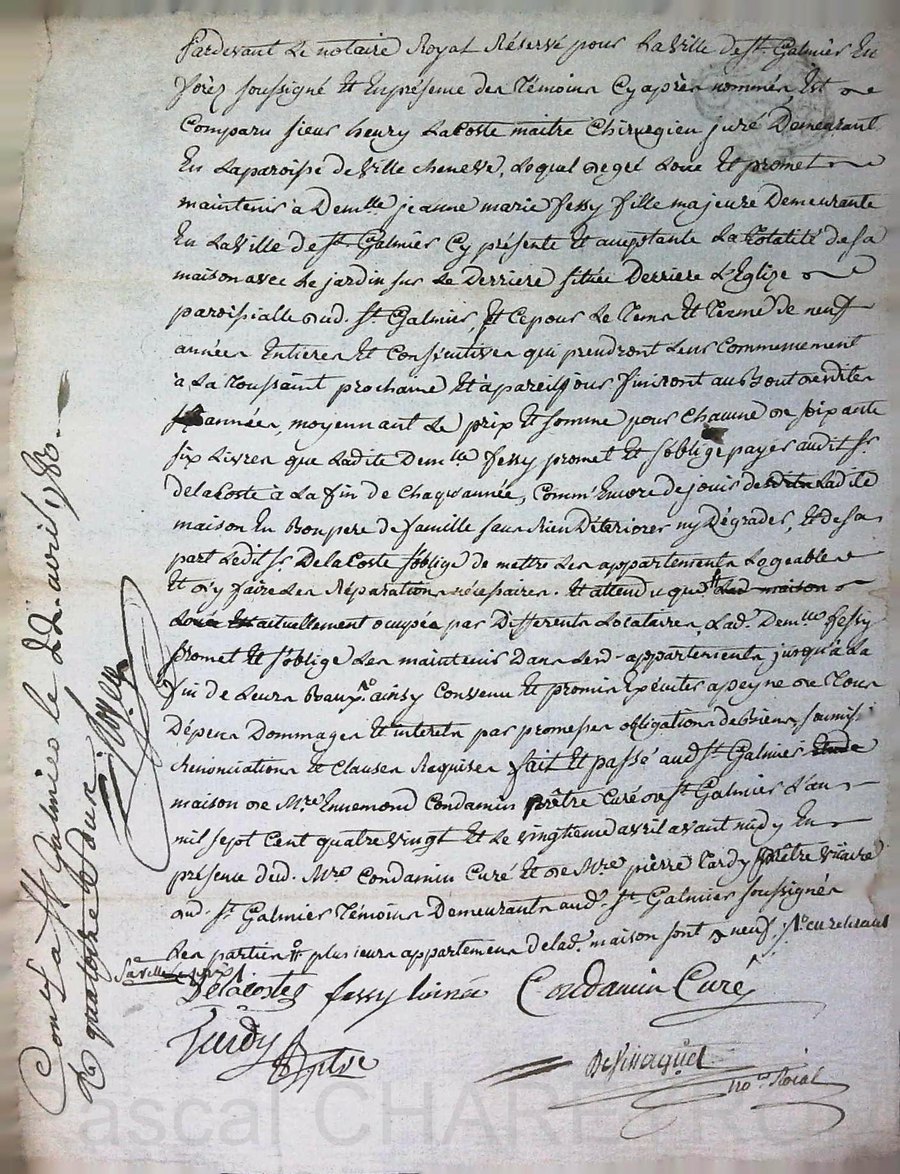 Pardevant Le notaire Royal Réservé pour La Ville de St. Galmier En
forez soussigné Et En présence des Témoins Cy après nommés, Est
Comparu sieur henry LaCoste maitre Chirurgien juré Demeurant
En La paroisse de Ville cheneve, Lequel de gré Loue Et promet
maintenir a Demlle jeanne marie fessy fille majeure Demeurante
En La Ville de St. Galmier Cy présente Et acceptante La totalité de sa
maison avec Le jardin sur Le Derriere située Derriere L'Eglize
paroissialle dud. St. Galmier, Et Ce pour Le Tems Et Terme de neuf
années Entieres Et Consécutives qui prendront Leur Commencement
a La Toussaint prochaine Et a pareil jour finiront au Bout desdites
années, moyennant Le prix Et somme pour Chacune de soixante
six Livres que Ladite Demlle fessy promet Et s'oblige payer audit Sr.
de La Coste a La fin de Chaque année, Comm'Encore de jouir de Ladite
maison En Bon pere de famille sans Rien Déteriorer ny Dégrader, Et de sa
part Ledit Sr. De La Coste s'oblige de mettre Les appartements Logeables
Et d'y faire Les Réparations nécessaires. Et attendu que Lad. maison
Louée Est actuellement occupée par Differents Locataires, Lad. Demlle fessy
promet Et s'oblige Les maintenir Dans Lesd. appartements jusqu'a La
fin de Leurs Baux, ainsy Convenu Et promis Exécuter a peyne de Tous
Dépens Dommages Et interets par promesses obligations de Biens, soumissions
Rénonciations Et Clauses Requises fait Et passé aud. St. Galmier
maison de Mre. Ennemond Condamin prêtre Curé de St. Galmier L'an
mil sept Cent quatre vingt Et Le vingtieme avril avant midy En
présence dud. Mre. Condamin Curé Et de Mre. pierre Tardy prêtre vicaire
dud. St. Galmier Témoins Demeurants aud. St. Galmier soussignés
Les parties plusieurs appartemens de lad. maison sont
Delacoste fessy Condamin Curé
Tardy ptre
no.re Roial
Con.lé a St Galmier le 22 avril 1780.
R quatorze